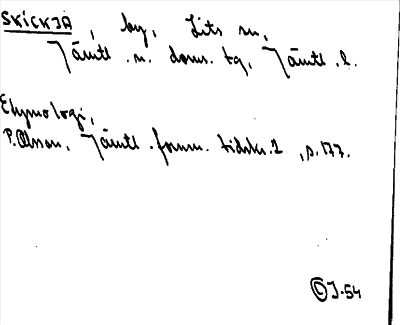 SKICKJA, by, Lits sn,
Jämtl. n. doms. tg, Jämtl. l.
Etymologi,
P. Olsson, Jämtl. fornm. tidskr. 2, s. 177.
© J-54